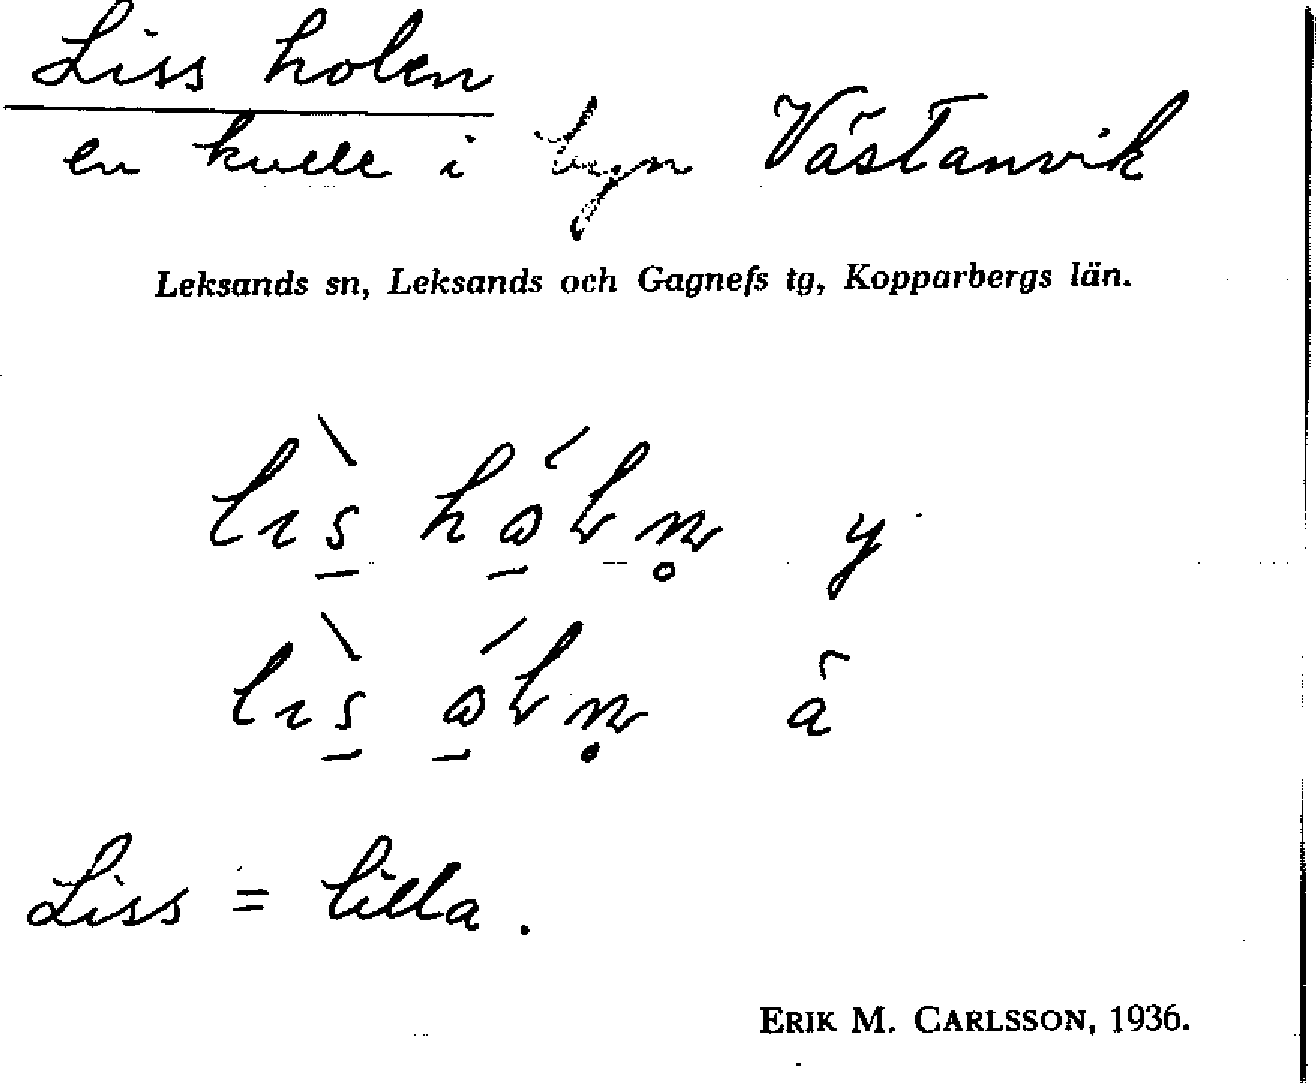 Liss holen
en kulle i byn Västanvik
Leksands sn, Leksands och Gagnefs tg, Kopparbergs län.
y
ä
Liss = lilla.
ERIK M. CARLSSON, 1936.